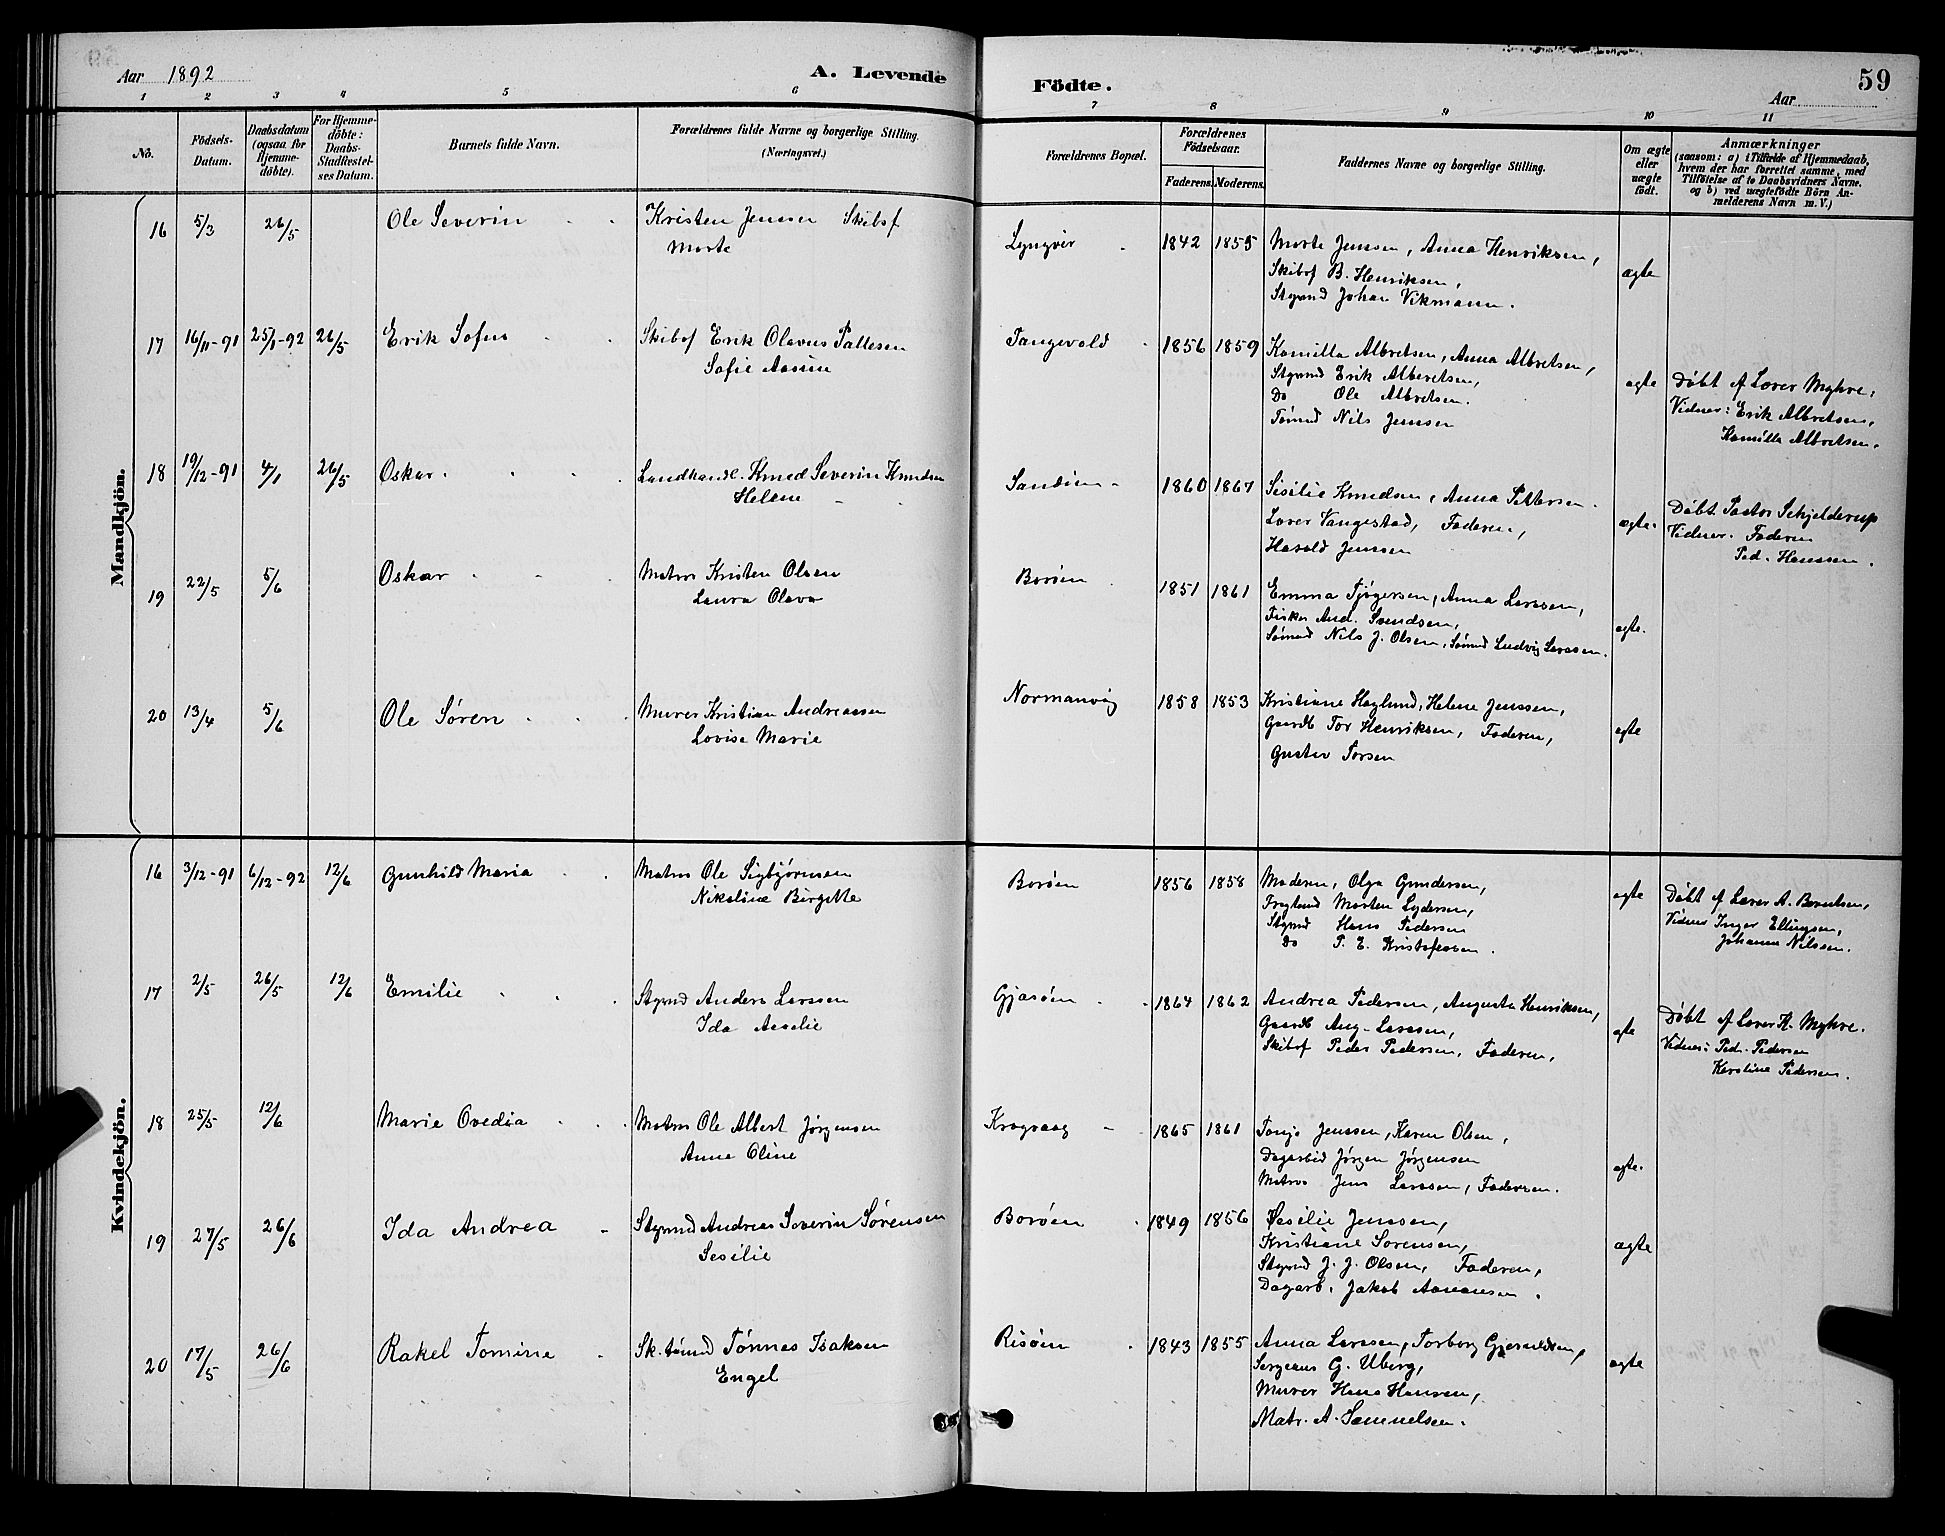 Aar 1892
A. Levende
Födte.
Aar
59
1 2 3 4 5 6 7 8 9 10 11
No.
Födsels-
Datum.
Daabsdatum
(ogsaa for
Hjemme-
döbte).
For Hjemme-
döbte:
Daabs-
Stadfæstel-
ses Datum.
Barnets fulde Navn.
Forældrenes fulde Navne og borgerlige Stilling.
(Næringsvei.)
Forældrenes Bopæl.
Forældrenes
Födselsaar.
Faderens. Moderens.
Faddernes Navne og borgerlige Stilling.
Om ægte
eller
uægte
födt.
Anmærkninger
(saasom: a) i Tilfælde af Hjemmedaab,
hvem der har forrettet samme, med
Tilföielse af to Daabsvidners Navne.
og b) ved uægtefödte Börn An-
melderens Navn m. V.)
Mandkjön.
16 5/3 26/5 Ole Severin Kristen Jenssen Skibsf
Marte
Lyngvør 1842 1855 Marte Jenssen, Anna Henriksen,
Skibsf B. Henriksen,
Stymd Johan Vikmann.
ægte
17 16/11-91 25/1-92 26/5 Erik Sofus Skibsf Erik Olavus Tallesen
Sofie
Tangevold 1856 1859 Kamilla Albretsen, Anna Albretsen,
Stymd Erik Albretsen,
Do Ole Albretsen.
Tømmd Nils Jenssen
ægte
Døbt af Lærer Myhre:
Vidner: Erik Albretsen,
Kamilla Albretsen.
18 19/12-91 4/1 26/5 Oskar Landhandl. Knud Severin Knudsen
Helene
1860 1867 Sisilie Knudsen, Anna Pettersen
Lærer Vangestad, Faderen,
Harald Jenssen
ægte
Døbt Pastor Schjelderup
Vidner. Faderen
Ped. Hanssen.
19 22/5 5/6 Oskar Matros Kristen Olsen
Laura Olava
Borøen 1851 1861 Emma Tjøgersen, Anna Larssen,
Fisker And. Svendsen,
Sømd Nils J. Olsen, Sømd Ludvig Larssen.
ægte.
20 13/4 5/6 Ole Søren Murer Kristian Andreassen
Lovise Marie
Normanvig 1858 1853 Kristiane Haglund, Helene Jenssen,
Gaardb Tor Henriksen, Faderen,
Gustav Torsen
ægte
Kvindekjön.
16 3/12-91 6/12-92 12/6 Gunhild Maria Matros Ole Sigbjørnsen
Nikoline Birgitte
Borøen 1856 1858 Moderen, Olga Gundersen,
Morten Lydersen,
Stymd Hans Pedersen
Do P. E. Kristofersen.
ægte
Døbt af Lærer A. Berntsen,
Vidner Inger Ellingsen,
Johanne Nilssen.
17 2/5 26/5 12/6 Emilie Stymd Anders Larssen
Ida Amalie
Gjæsøen 1864 1862 Andrea Pedersen, Augusta Henriksen,
Gaardb Aug. Larssen,
Skibsf Peder Pedersen, Faderen,
ægte
Døbt af Lærer K. Myhre.
Vidner: Ped. Pedersen
Karoline Pedersen.
18 25/5 12/6 Marie Ovedia Matros Ole Albert Jørgensen
Anne Oline
Krogvaag 1865 1861 Tonje Jenssen, Karen Olsen,
Dagarbeid Jørgen Jørgensen
Matros Jens Larssen, Faderen.
ægte.
19 27/5 26/6 Ida Andrea Stymd Andreas Severin Sørensen
Sesilie
Borøen 1849 1856 Sesilie Jenssen,
Kristiane Sorensen,
Stymd J. J. Olsen, Faderen,
Dagarb. Jakob Aanonsen.
ægte
20 17/5 26/6 Rakel Tomine Sk.tømmd Tønnes Isaksen
Engel
Risøen 1843 1855 Anna Larssen, Torborg Gjeruldsen,
Sergeant G. Uberg,
Murer Hans Hansen,
Matr. A. Samuelsen.
ægte